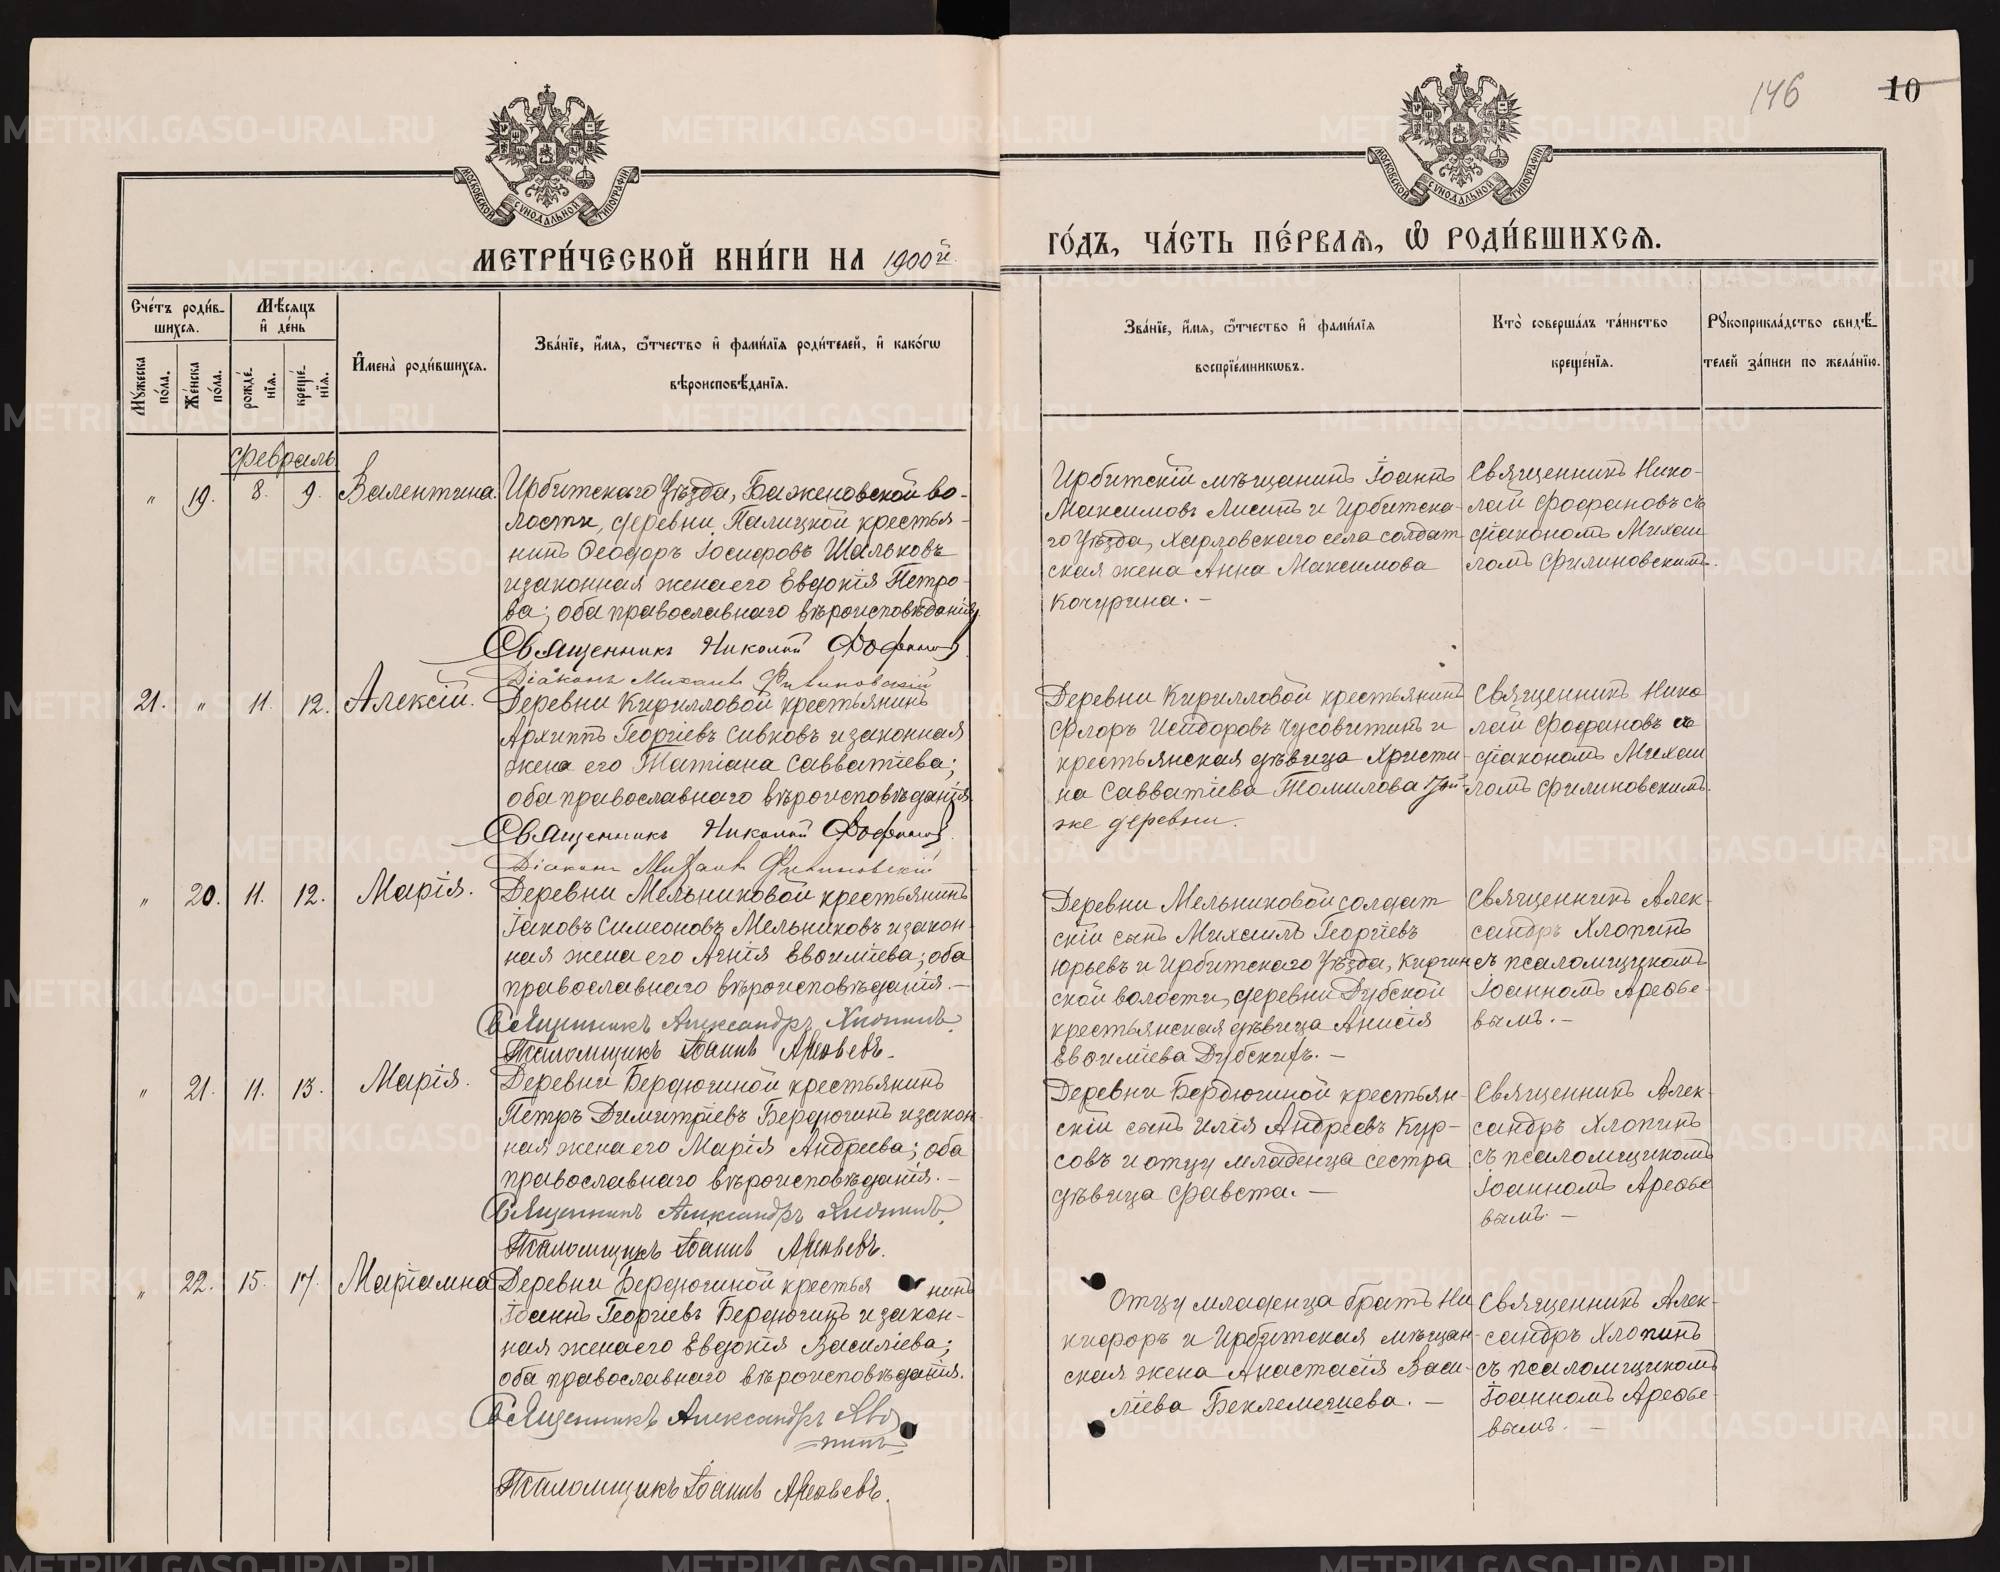 146
10
МОСКОВСКОЙ СѴНОДАЛЬНОЙ ТИПОГРАФІИ
МОСКОВСКОЙ СѴНОДАЛЬНОЙ ТИПОГРАФІИ
МЕТРИ́ЧЕСКОЙ КНИ́ГИ НА 1900й
ГО́ДЪ, ЧА́СТЬ ПЕ́РВАѦ, Ѽ РОДИ́ВШИХСѦ.
Сче́тъ роди́в-
шихсѧ.
Мѣ́сѧцъ
и҆ де́нь
Мꙋ́жеска по́ла.
Же́нска по́ла.
рожде́-
нїѧ.
креще́-
нїѧ.
И҆мена̀ роди́вшихсѧ.
Зва́нїе, и҆́мѧ, ѻ҆́тчество и҆ фами́лїѧ роди́телей, и҆ како́гѡ
вѣроисповѣ́данїѧ.
Зва́нїе, и҆́мѧ, ѻ҆́тчество и҆ фами́лїѧ
воспрїе́мникѡвъ.
Кто̀ соверша́лъ та́инство
креще́нїѧ.
Рꙋкоприкла́дство свидѣ́-
телей за́писи по жела́нїю.
Февраль
" 19. 8. 9. Валентина.
Ирбитскаго Уѣзда, Баженовской во-
лости, деревни Палицкой крестья-
нинъ Ѳеодоръ Іосифовъ Шальковъ
и законная жена его Евдокія Петро-
ва; оба православнаго вѣроисповѣданія
Священникъ Николай Фофановъ
Діаконъ Михаилъ Филиновскій
Ирбитскій мѣщанинъ Іоаннъ
Максимовъ Лиситъ и Ирбитска-
го Уѣзда, Харловскаго села солдат-
ская жена Анна Максимова
Кочурина. —
Священникъ Нико-
лай Фофановъ съ
діакономъ Михаи
ломъ Филиновскимъ.
21. " 11. 12. Алексій.
Деревни Кирилловой крестьянинъ
Архиппъ Георгіевъ Сивковъ и законная
жена его Татіана Савватіева;
оба православнаго вѣроисповѣданія
Священникъ Николай Фофановъ
Діаконъ Михаилъ Филиновскій
Деревни Кирилловой крестьянинъ
Флоръ Исидоровъ Чусовитинъ и
крестьянская дѣвица Христи-
на Савватіева Томилова той-
же деревни.
Священникъ Нико
лай Фофановъ съ
діакономъ Михаи
ломъ Филиновскимъ.
" 20. 11. 12. Марія.
Деревни Мельниковой крестьянинъ
Іаковъ Симеоновъ Мельниковъ и закон-
ная жена его Агнія Евоиліева; оба
православнаго вѣроисповѣданія. —
Священникъ Александръ Хлопинъ.
Псаломщикъ Іоаннъ Арефьевъ.
Деревни Мельниковой солдат
скій сынъ Михаилъ Георгіевъ
Юрьевъ и Ирбитскаго Уѣзда, Киргин
ской волости, деревни Дубской
крестьянская дѣвица Анисія
Евоиліева Дубскихъ. —
Священникъ Алек-
сандръ Хлопинъ
съ псаломщикомъ
Іоанномъ Арефье-
вымъ. —
" 21. 11. 13. Марія.
Деревни Бердюгиной крестьянинъ
Петръ Димитріевъ Бердюгинъ и закон-
ная жена его Марія Андреева; оба
православнаго вѣроисповѣданія. —
Священникъ Александръ Хлопинъ.
Псаломщикъ Іоаннъ Арефьевъ.
Деревни Бердюгиной крестьян-
скій сынъ Илія Андреевъ Кур-
совъ и отцу младенца сестра
дѣвица Фавста. —
Священникъ Алек-
сандръ Хлопинъ
съ псаломщикомъ
Іоанномъ Арефье
вымъ. —
" 22. 15. 17. Маріамна
Деревни Бердюгиной крестья нинъ
Іоаннъ Георгіевъ Бердюгинъ и закон-
ная жена его Евдокія Василіева;
оба православнаго вѣроисповѣданія.
Священникъ Александръ Хло
пинъ
Псаломщикъ Іоаннъ Арефьевъ.
Отцу младенца братъ Ни
кифоръ и Ирбитская мѣщан-
ская жена Анастасія Васи-
ліева Беклемишева. —
Священникъ Алек-
сандръ Хлопинъ
съ псаломщикомъ
Іоанномъ Арефье-
вымъ. —
METRIKI.GASO-URAL.RU